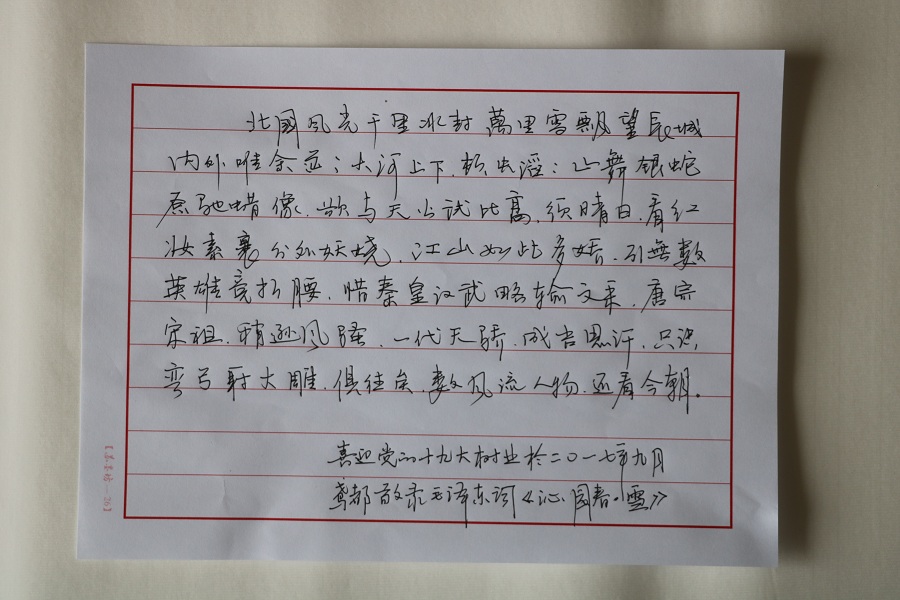 北國风光千里冰封萬里雪飘望長城
内外唯余莽；大河上下.顿失滔：山舞银蛇
原驰蜡像.欲与天公试比高.须晴日.看红
妆素裹分外妖娆.江山如此多娇.引無數
英雄竟折腰.惜秦皇汉武略输文采.唐宗
宋祖.稍逊风骚.一代天骄.成吉思汗.只识
弯弓射大雕.俱往矣.數风流人物.还看今朝.
喜迎党的十九大树业於二〇一七年九月
鸢都敬录毛泽东词《沁园春·雪》